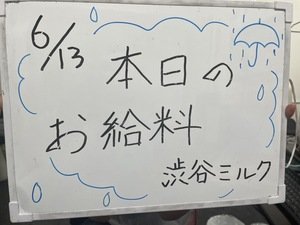 6/13
本日の
お給料
渋谷ミルク